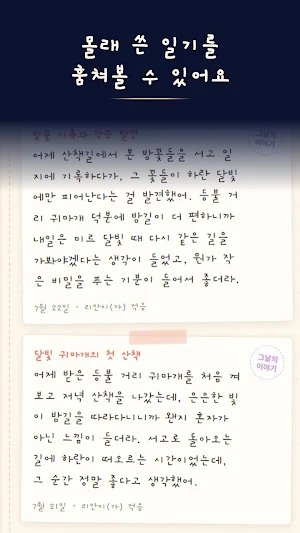 몰래 쓴 일기를
훔쳐볼 수 있어요
그날의
이야기
어제 산책길에서 본 밤꽃들을 서고 일
지에 기록하다가, 그 꽃들이 하란 달빛
에만 피어난다는 걸 발견했어. 등불 거
리 귀마개 덕분에 밤길이 더 편하니까
내일은 미르 달빛 때 다시 같은 길을
가봐야겠다는 생각이 들었고, 뭔가 작
은 비밀을 푸는 기분이 들어서 좋더라.
7월 22일 · 리안이(가) 적음
달빛 귀마개의 첫 산책
그날의
이야기
어제 받은 등불 거리 귀마개를 처음 껴
보고 저녁 산책을 나갔는데, 은은한 빛
이 밤길을 따라다니니까 왠지 혼자가
아닌 느낌이 들더라. 서고로 돌아오는
길에 하란이 떠오르는 시간이었는데,
그 순간 정말 좋다고 생각했어.
7월 21일 · 리안이(가) 적음